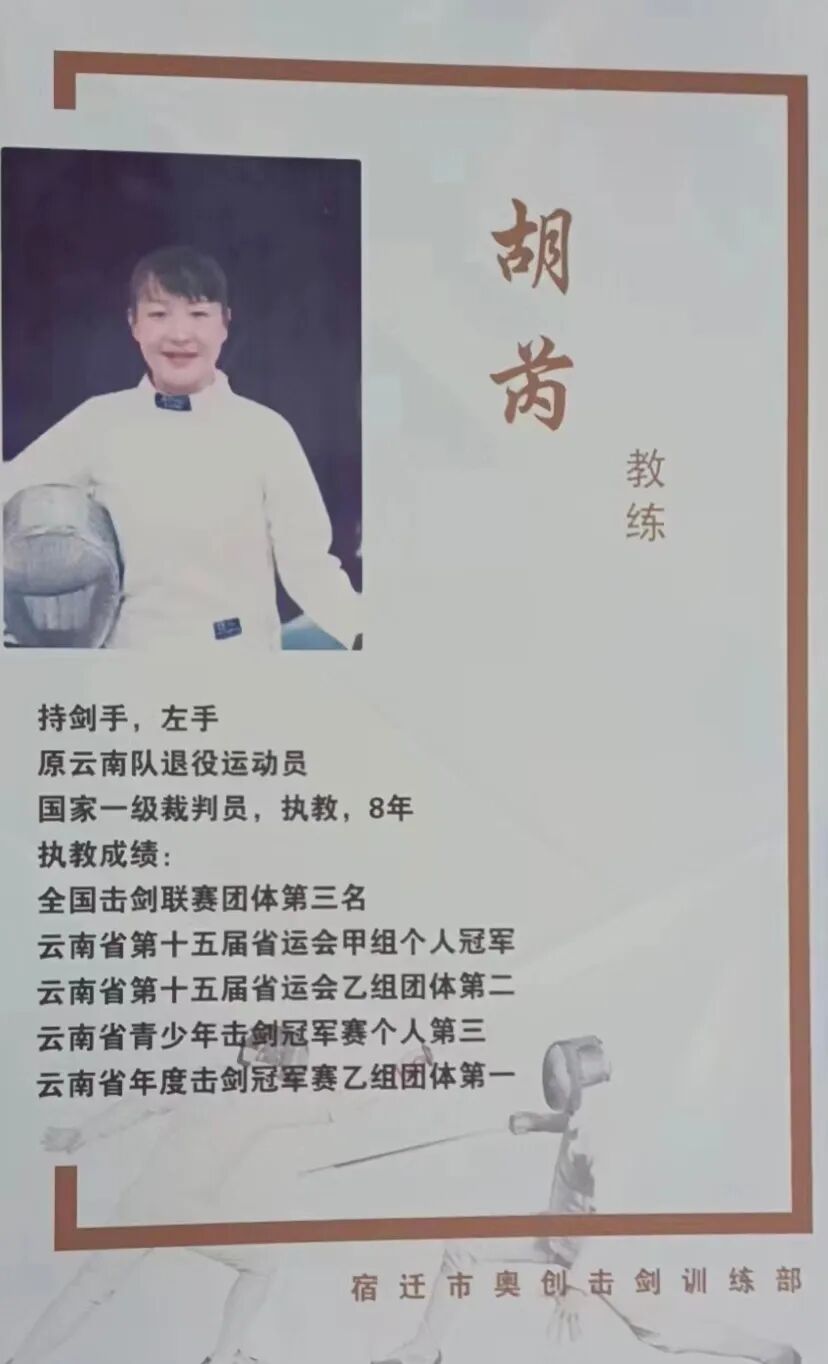 胡芮
教练
持剑手，左手
原云南队退役运动员
国家一级裁判员，执教，8年
执教成绩：
全国击剑联赛团体第三名
云南省第十五届省运会甲组个人冠军
云南省第十五届省运会乙组团体第二
云南省青少年击剑冠军赛个人第三
云南省年度击剑冠军赛乙组团体第一
宿迁市奥创击剑训练部